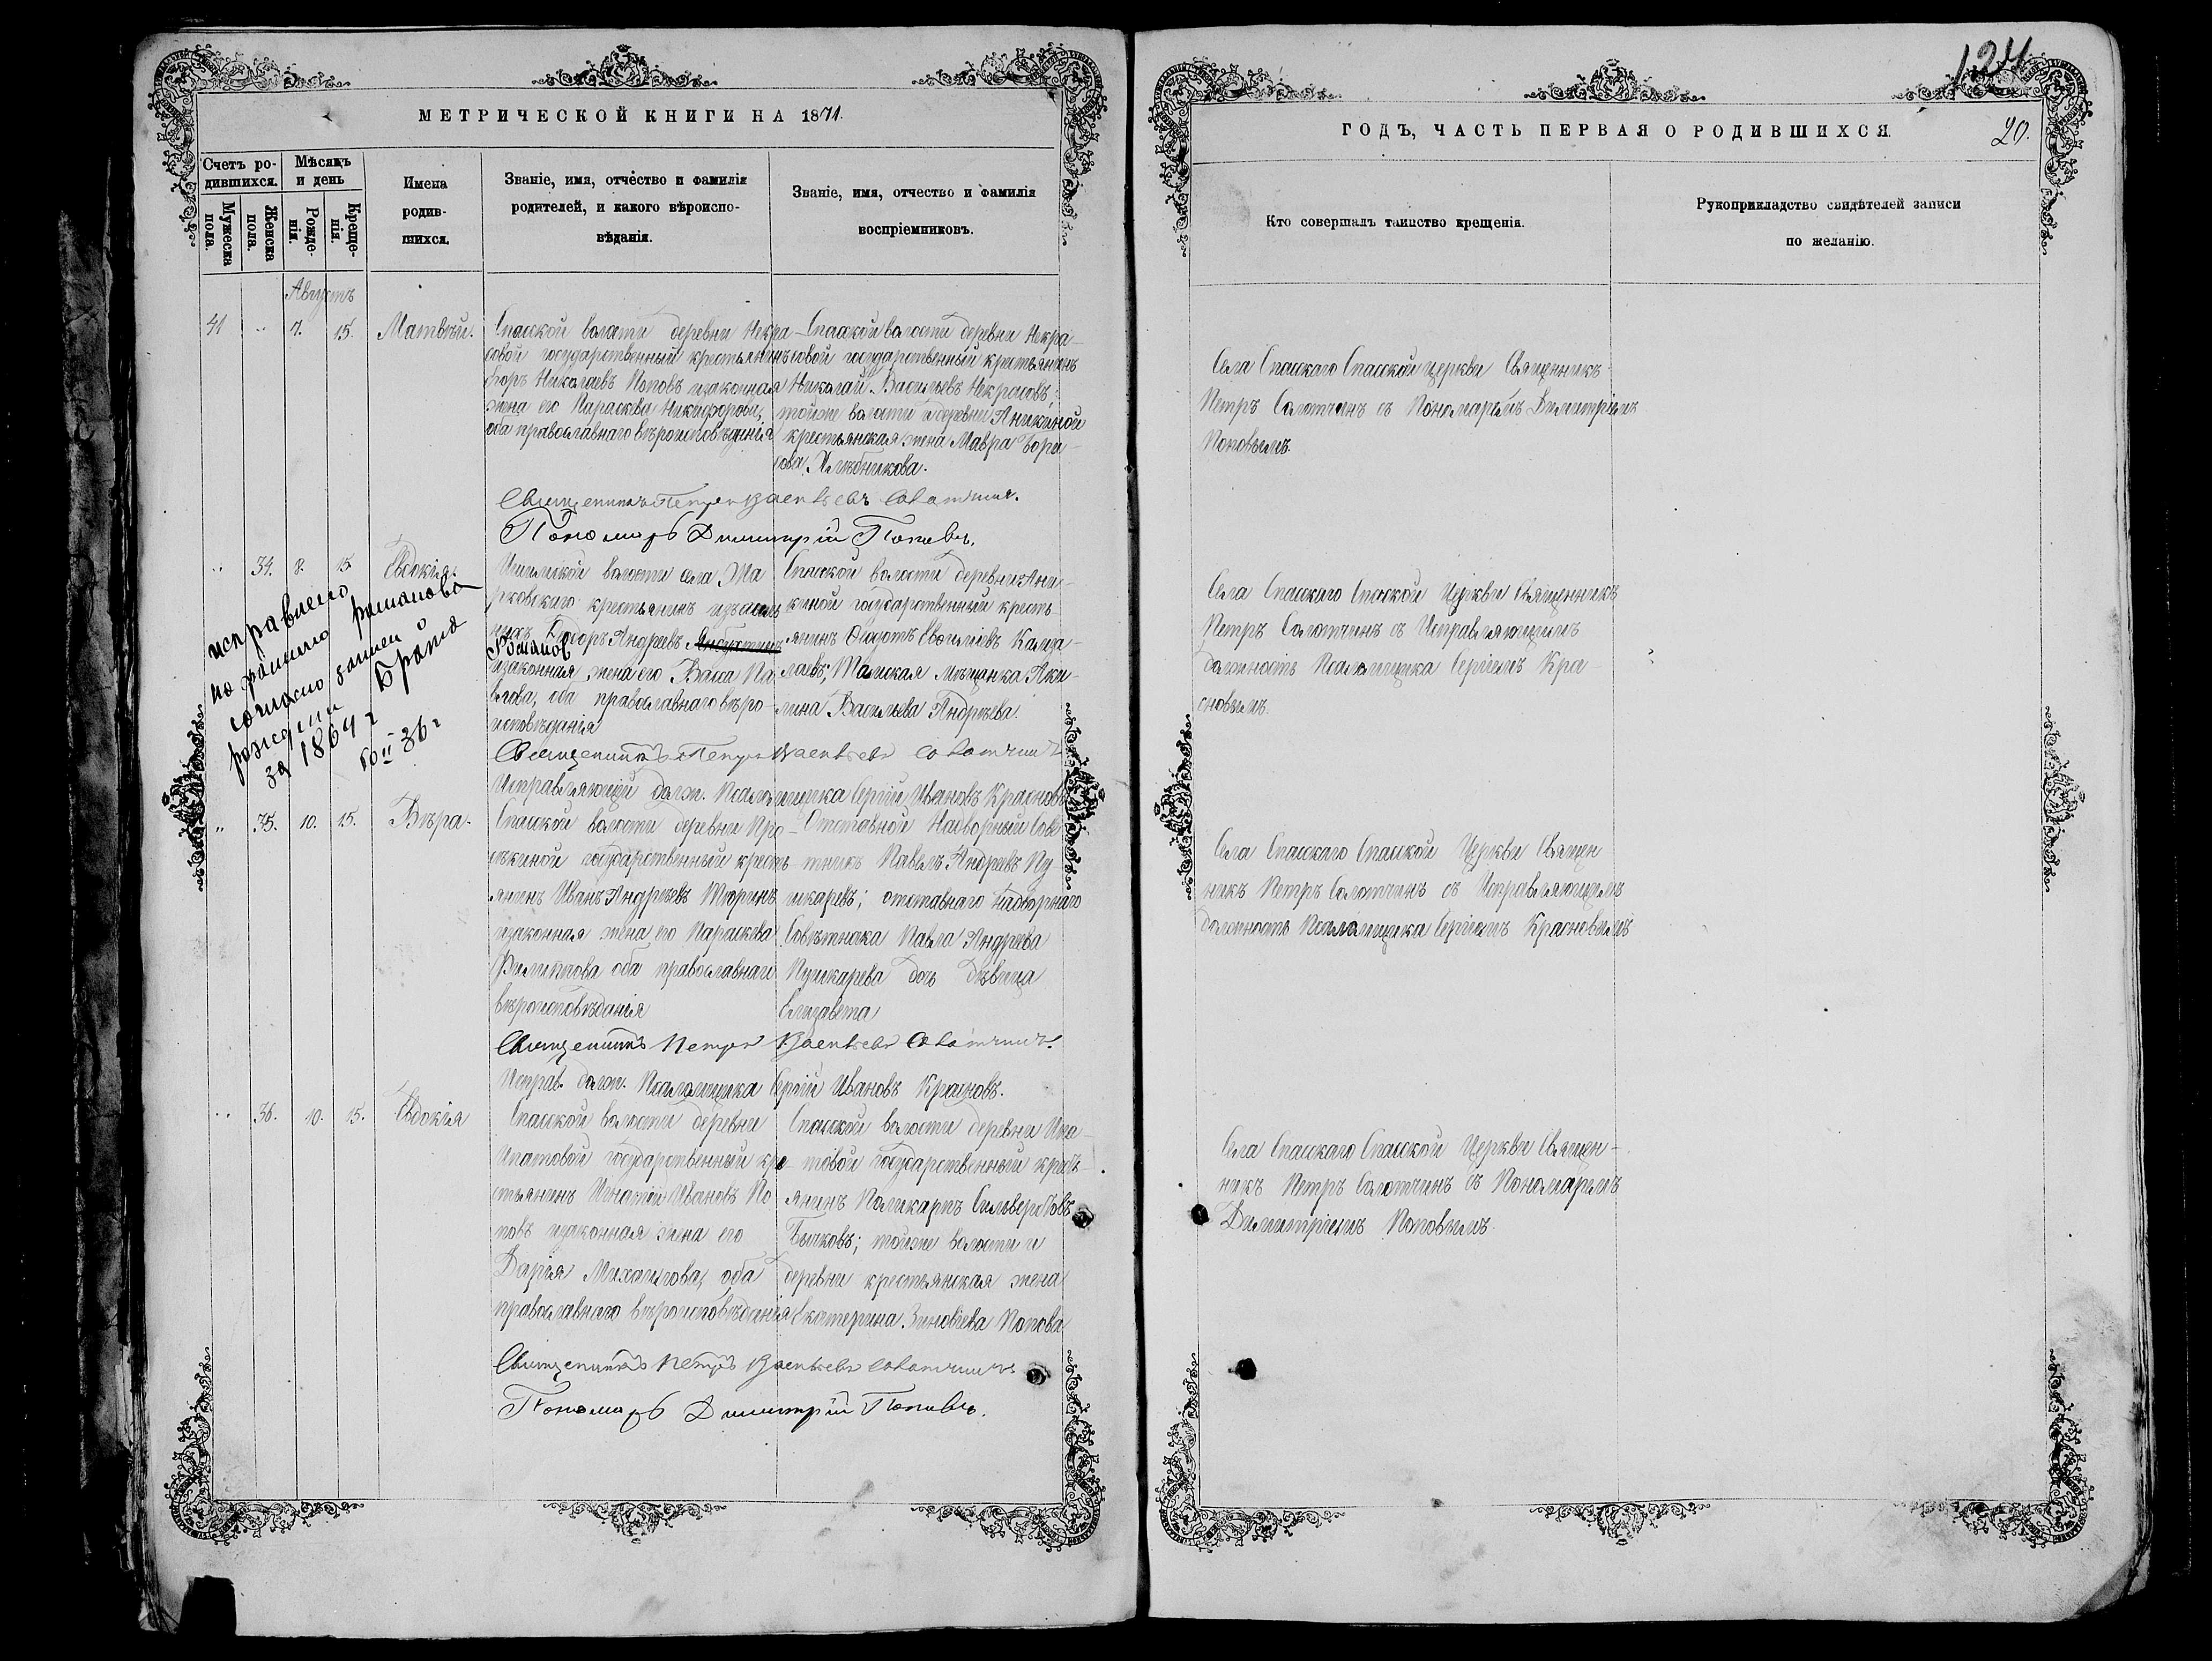 МЕТРИЧЕСКОЙ КНИГИ НА 1871.
Счетъ ро-
дившихся.
Мѣсяцъ
и день
Мужеска
пола.
Женска
пола.
Рожде-
нія.
Креще-
нія.
Имена
родив-
шихся.
Званіе, имя, отчество и фамилія
родителей, и какого вѣроиспо-
вѣданія.
Званіе, имя, отчество и фамилія
воспріемниковъ.
Августъ
41 „ 7. 15. Матвѣй.
Спасской волости деревни Некра-
совой государственный крестьянинъ
Николаевъ Поповъ изаконная
жена его Параскева Никифорова,
оба православнаго вѣроисповѣданія
Спасской волости деревни Некра-
совой государственный крестьянинъ
Николай Васильевъ Некрасовъ;
тойже волости и деревни Аникиной
крестьянская жена Мавра Бори-
сова Хлѣбникова.
Священникъ Петръ Васильевъ Солотчинъ.
Пономарь Димитрій Поповъ.
„ 34. 8. 15. Евдокія.
исправлено
на фамилию Романова
согласно записей о
рождении Брата
за 1864 г
Волости села
крестьянинъ
Ѳедоръ Андреевъ
Романов
изаконная жена его Васса Па
влова, оба православнаго вѣро-
исповѣданія
Спасской волости деревни Ани-
киной государственный кресть-
янинъ
Томская мѣщанка Аки-
лина Васильева Андреева.
Священникъ Петръ Васильевъ Солотчинъ
Исправляющій долж. Псаломщика Сергій Ивановъ Красновъ
„ 35. 10. 15. Вѣра.
Спасской волости деревни Про-
скиной государственный кресть
янинъ Иванъ Андреевъ Тюринъ
изаконная жена его Параскева
Филиппова оба православнаго
вѣроисповѣданія
Отставной Надворный Совѣ
тникъ Павелъ Андреевъ Пу
шкаревъ; отставнаго Надворнаго
Совѣтника Павла Андреева
Пушкарева дочь дѣвица
Елизавета
Священникъ Петръ Васильевъ Солотчинъ.
Исправ. долж. Псаломщика Сергій Ивановъ Красновъ.
„ 36. 10. 15. Евдокія
Спасской волости деревни
Ипатовой государственный кре-
стьянинъ Игнатій Ивановъ По
повъ изаконная жена его
Дарія Михаилова, оба
православнаго вѣроисповѣданія
Спасской волости деревни Ипа-
товой государственный кресть-
янинъ Поликарпъ Сильверстовъ
Бычковъ; тойже волости и
деревни крестьянская жена
Екатерина Зиновіева Попова
Священникъ Петръ Васильевъ Солотчинъ
Пономарь Димитрій Поповъ.
124
ГОДЪ, ЧАСТЬ ПЕРВАЯ О РОДИВШИХСЯ.
20.
Кто совершалъ таинство крещенія.
Рукоприкладство свидѣтелей записи
по желанію.
Села Спасскаго Спасской церкви Священникъ
Петръ Солотчинъ съ Пономаремъ Димитріемъ
Поповымъ.
Села Спасскаго Спасской Церкви Священникъ
Петръ Солотчинъ съ Исправляющимъ
должность Псаломщика Сергіемъ Кра-
сновымъ.
Села Спасскаго Спасской Церкви Священ
никъ Петръ Солотчинъ съ Исправляющимъ
должность Псаломщика Сергіемъ Красновымъ
Села Спасскаго Спасской Церкви Священ-
никъ Петръ Солотчинъ съ Пономаремъ
Димитріемъ Поповымъ.